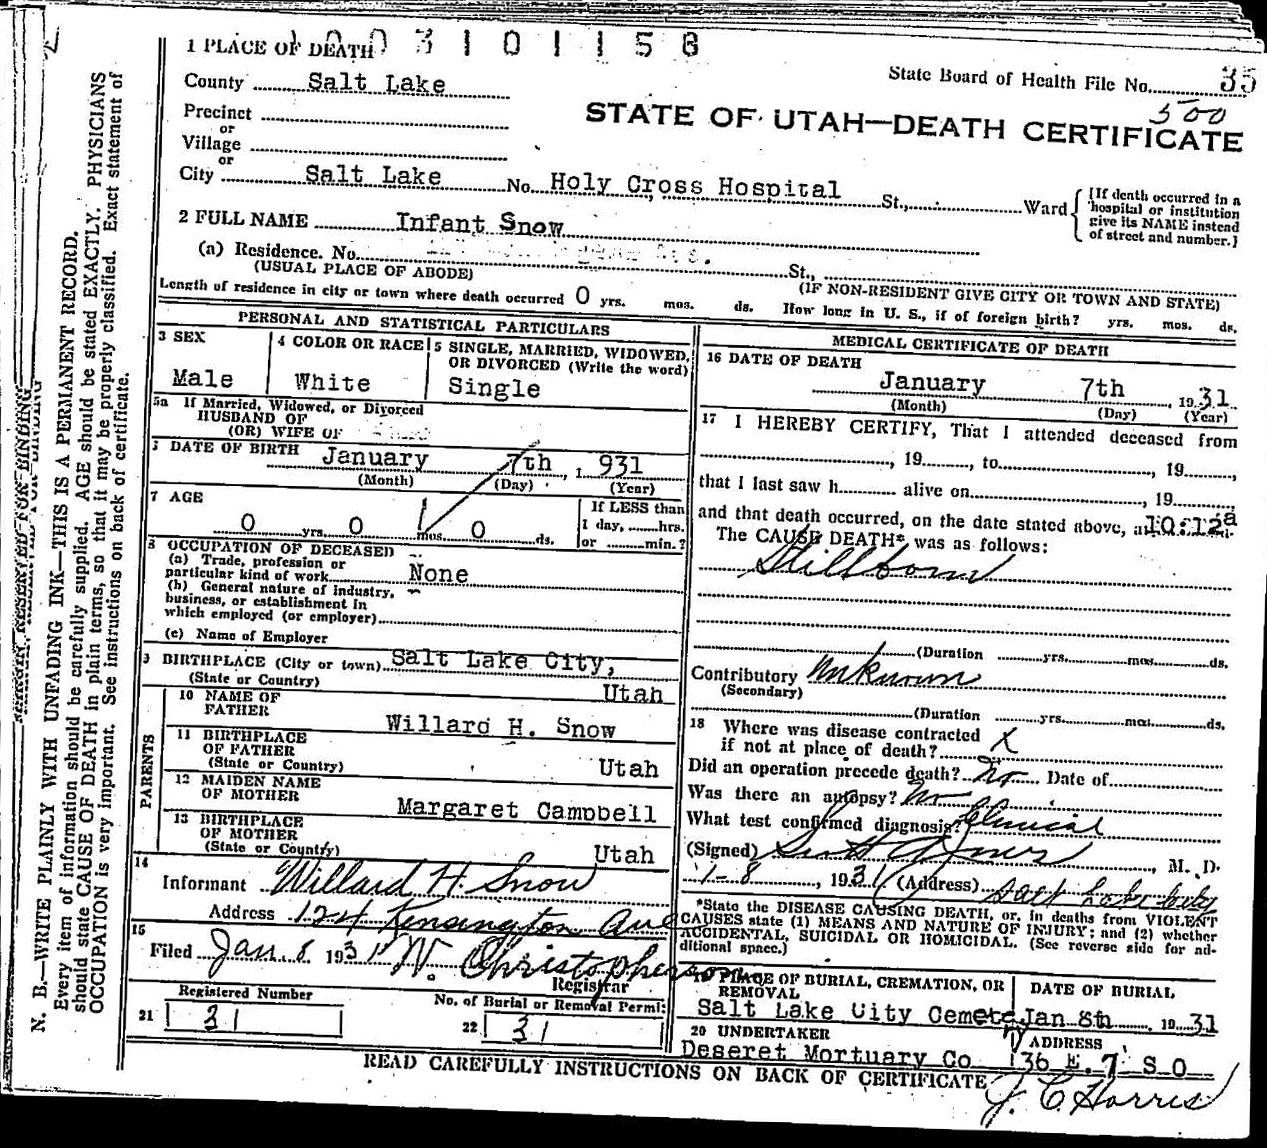 1 PLACE OF DEATH
1 0 0 3 1 0 1 1 5 8
State Board of Health File No. 35
500
County Salt Lake
STATE OF UTAH—DEATH CERTIFICATE
Precinct
or
Village
or
City Salt Lake No. Holy Cross Hospital St., Ward
{If death occurred in a
hospital or institution
give its NAME instead
of street and number.}
2 FULL NAME Infant Snow
(a) Residence. No. St.,
(USUAL PLACE OF ABODE) (IF NON-RESIDENT GIVE CITY OR TOWN AND STATE)
Length of residence in city or town where death occurred 0 yrs. mos. ds. How long in U. S., if of foreign birth? yrs. mos. ds.
PERSONAL AND STATISTICAL PARTICULARS
3 SEX
Male
4 COLOR OR RACE
White
5 SINGLE, MARRIED, WIDOWED,
OR DIVORCED (Write the word)
Single
5a If Married, Widowed, or Divorced
HUSBAND OF
(OR) WIFE OF
DATE OF BIRTH January 7th, 1931
(Month) (Day) (Year)
7 AGE
0 yrs. 0 mos 0 ds.
If LESS than
1 day, hrs.
or min.?
8 OCCUPATION OF DECEASED
(a) Trade, profession or
particular kind of work None
(b) General nature of industry,
business, or establishment in
which employed (or employer)
(c) Name of Employer
9 BIRTHPLACE (City or town) Salt Lake City,
(State or Country) Utah
PARENTS
10 NAME OF
FATHER
Willard H. Snow
11 BIRTHPLACE
OF FATHER
(State or Country) Utah
12 MAIDEN NAME
OF MOTHER
Margaret Campbell
13 BIRTHPLACE
OF MOTHER
(State or Country) Utah
14
Informant Willard H. Snow
Address 124 Kensington Ave
15
Filed Jan 8 1931 W. Christopherson
Registrar
Registered Number
21 31
No. of Burial or Removal Permit
22 31
MEDICAL CERTIFICATE OF DEATH
16 DATE OF DEATH
January 7th, 1931
(Month) (Day) (Year)
17 I HEREBY CERTIFY, That I attended deceased from
, 19, to, 19
that I last saw h alive on, 19
and that death occurred, on the date stated above, at 10:12a m.
The CAUSE DEATH* was as follows:
Stillborn
(Duration yrs. mos. ds.
Contributory Unknown
(Secondary)
(Duration yrs. mos. ds.
18 Where was disease contracted
if not at place of death? X
Did an operation precede death? No Date of
Was there an autopsy? No
What test confirmed diagnosis? Clinical
(Signed) M. D.
1-8, 1931 (Address) Salt Lake City
*State the DISEASE CAUSING DEATH, or, in deaths from VIOLENT
CAUSES state (1) MEANS AND NATURE OF INJURY; and (2) whether
ACCIDENTAL, SUICIDAL OR HOMICIDAL. (See reverse side for ad-
ditional space.)
19 PLACE OF BURIAL, CREMATION, OR
REMOVAL
Salt Lake City Cemetery
DATE OF BURIAL
Jan 8th 1931
20 UNDERTAKER
Deseret Mortuary Co
ADDRESS
136 E. 7 S O
READ CAREFULLY INSTRUCTIONS ON BACK OF CERTIFICATE
J. C. Harris
MARGIN RESERVED FOR BINDING
N. B.—WRITE PLAINLY WITH UNFADING INK—THIS IS A PERMANENT RECORD.
Every item of information should be carefully supplied. AGE should be stated EXACTLY. PHYSICIANS
should state CAUSE OF DEATH in plain terms, so that it may be properly classified. Exact statement of
OCCUPATION is very important. See instructions on back of certificate.